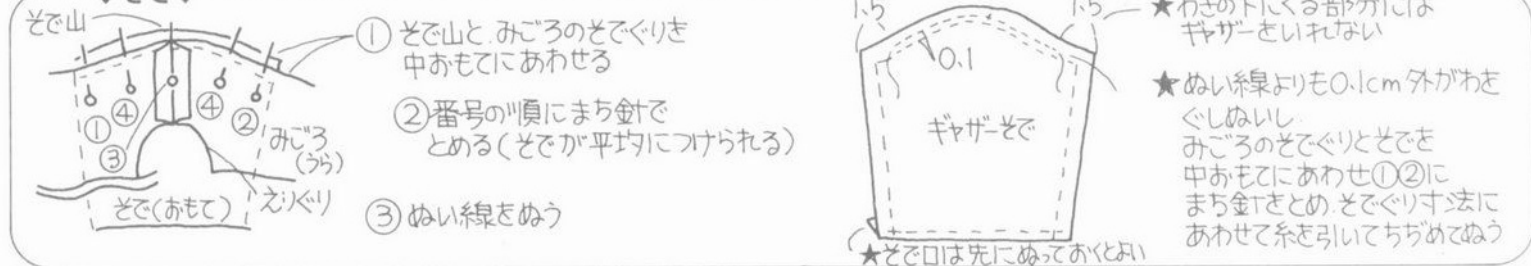 そで山
① そで山と、みごろのそでぐりを
中おもてにあわせる
② 番号の順にまち針で
とめる(そでが平均につけられる)
③ ぬい線をぬう
① ④ ④ ②
③
みごろ
(うら)
そで(おもて)
えりぐり
1.5
1.5
0.1
ギャザーそで
★そで口は先にぬっておくとよい
★わきの下にくる部分には
ギャザーをいれない
★ぬい線よりも0.1cm外がわを
ぐしぬいし
みごろのそでぐりとそでを
中おもてにあわせ①②に
まち針をとめ、そでぐり寸法に
あわせて糸を引いてちぢめてぬう